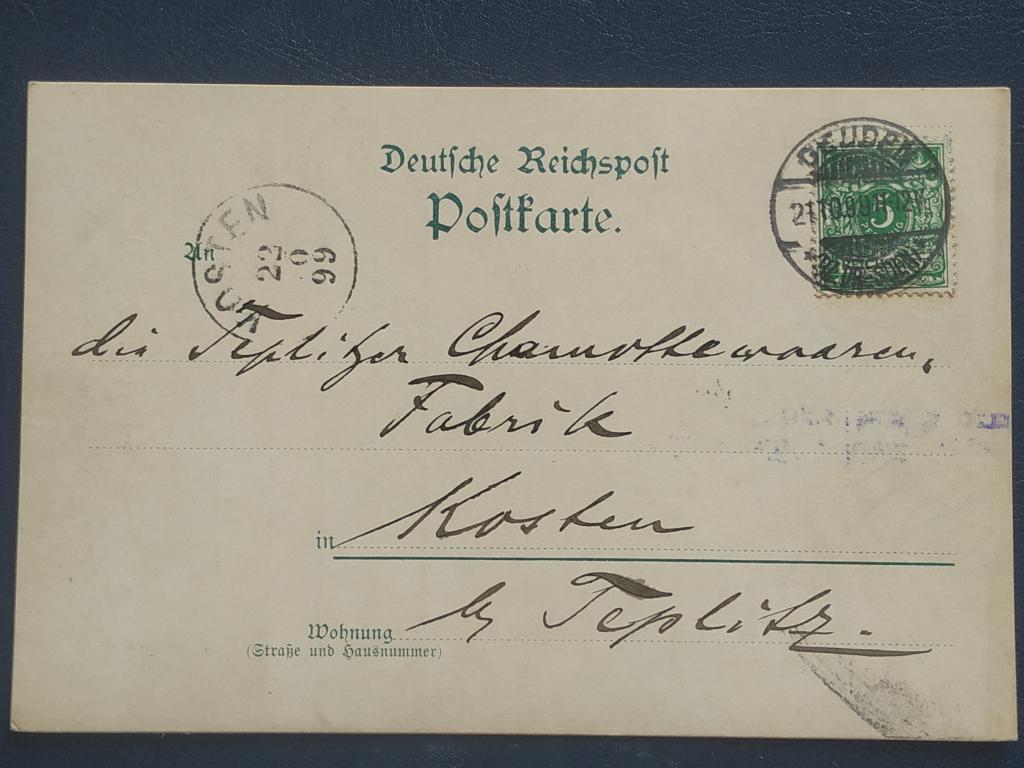 Deutsche Reichspost
Postkarte.
DEUBEN
21.10.99.11-12V.
* (BZ. DRESDEN) *
5
KOSTEN
22
10
99
An
die Teplitzer Chamottewaaren,
Fabrik
in Kosten
by Teplitz.
Wohnung
(Straße und Hausnummer)